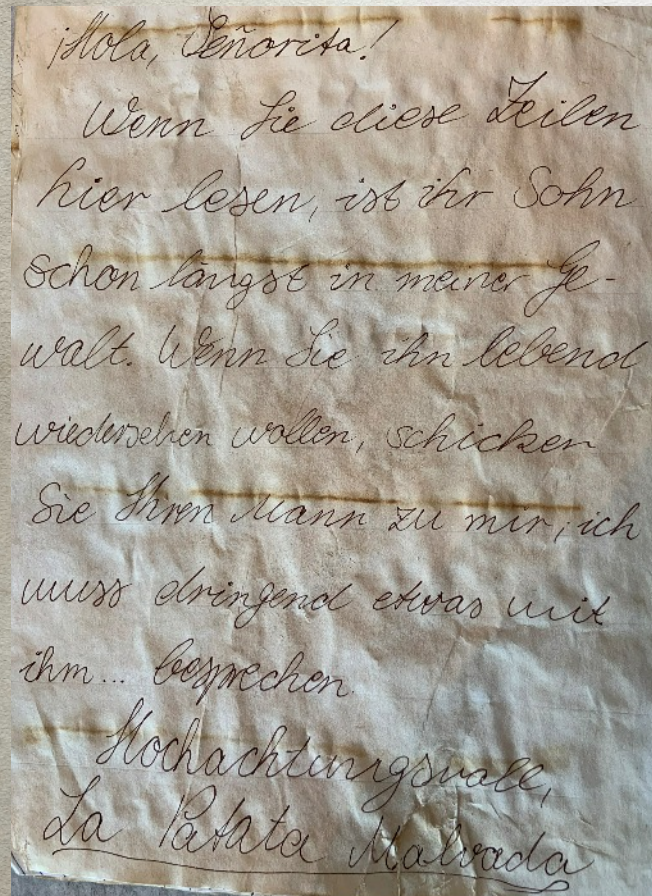 ¡Hola, Señorita!
Wenn Sie diese Zeilen
hier lesen, ist ihr Sohn
schon längst in meiner Ge-
walt. Wenn Sie ihn lebend
wiedersehen wollen, schicken
Sie Ihren Mann zu mir, ich
muss dringend etwas mit
ihm... besprechen.
Hochachtungsvoll,
La Patata Malvada